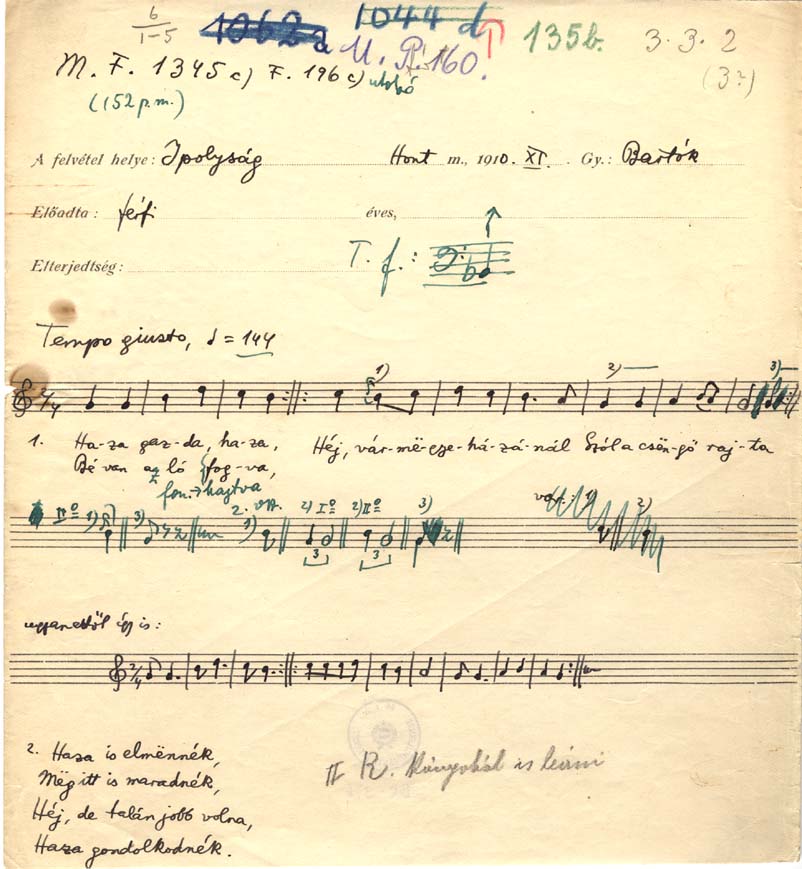 6
1-5
1062a
1044 d
M. P. 160.
135b.
3. 3. 2
(3?)
M. F. 1345 c) F. 196 c) utolsó
(152 p.m.)
A felvétel helye: Ipolyság Hont m., 1910. XI. Gy.: Bartók
Előadta: férfi éves,
Elterjedtség: T. f.:
Tempo giusto, = 144
1) 2) 3)
2/4
1. Ha-za gaz-da, ha-za, Héj, vár-më-gye-há-zá-nál Szól a csën-gő raj-ta
Bé van az ló fog-va,
fon. hajtva
IIº 1) 3) 2. vsz. 1) 2) Iº 2) IIº 3) var.: 1) 2)
3 3
ugyanettől így is:
2/4
2. Haza is elmënnék,
Mëg itt is maradnék,
Héj, de talán jobb volna,
Haza gondolkodnék.
II R.
is leírni